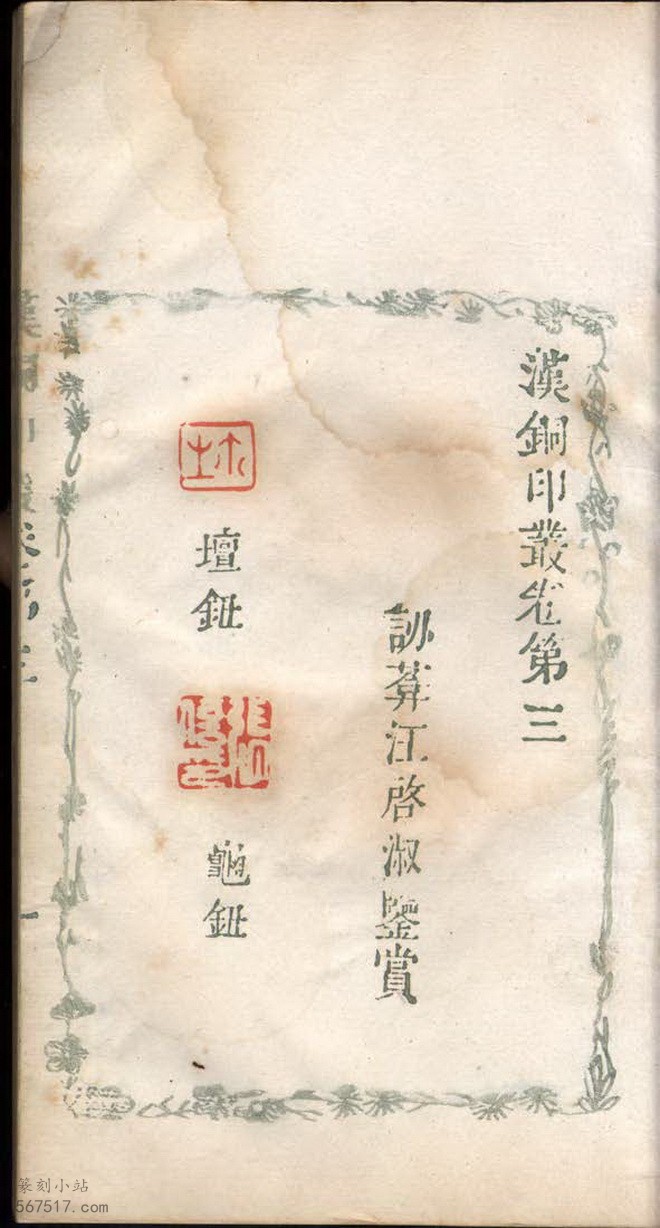 漢銅印叢卷第三
訒葊江啓淑鑒賞
壇鈕
龜鈕
篆刻小站
567517.com